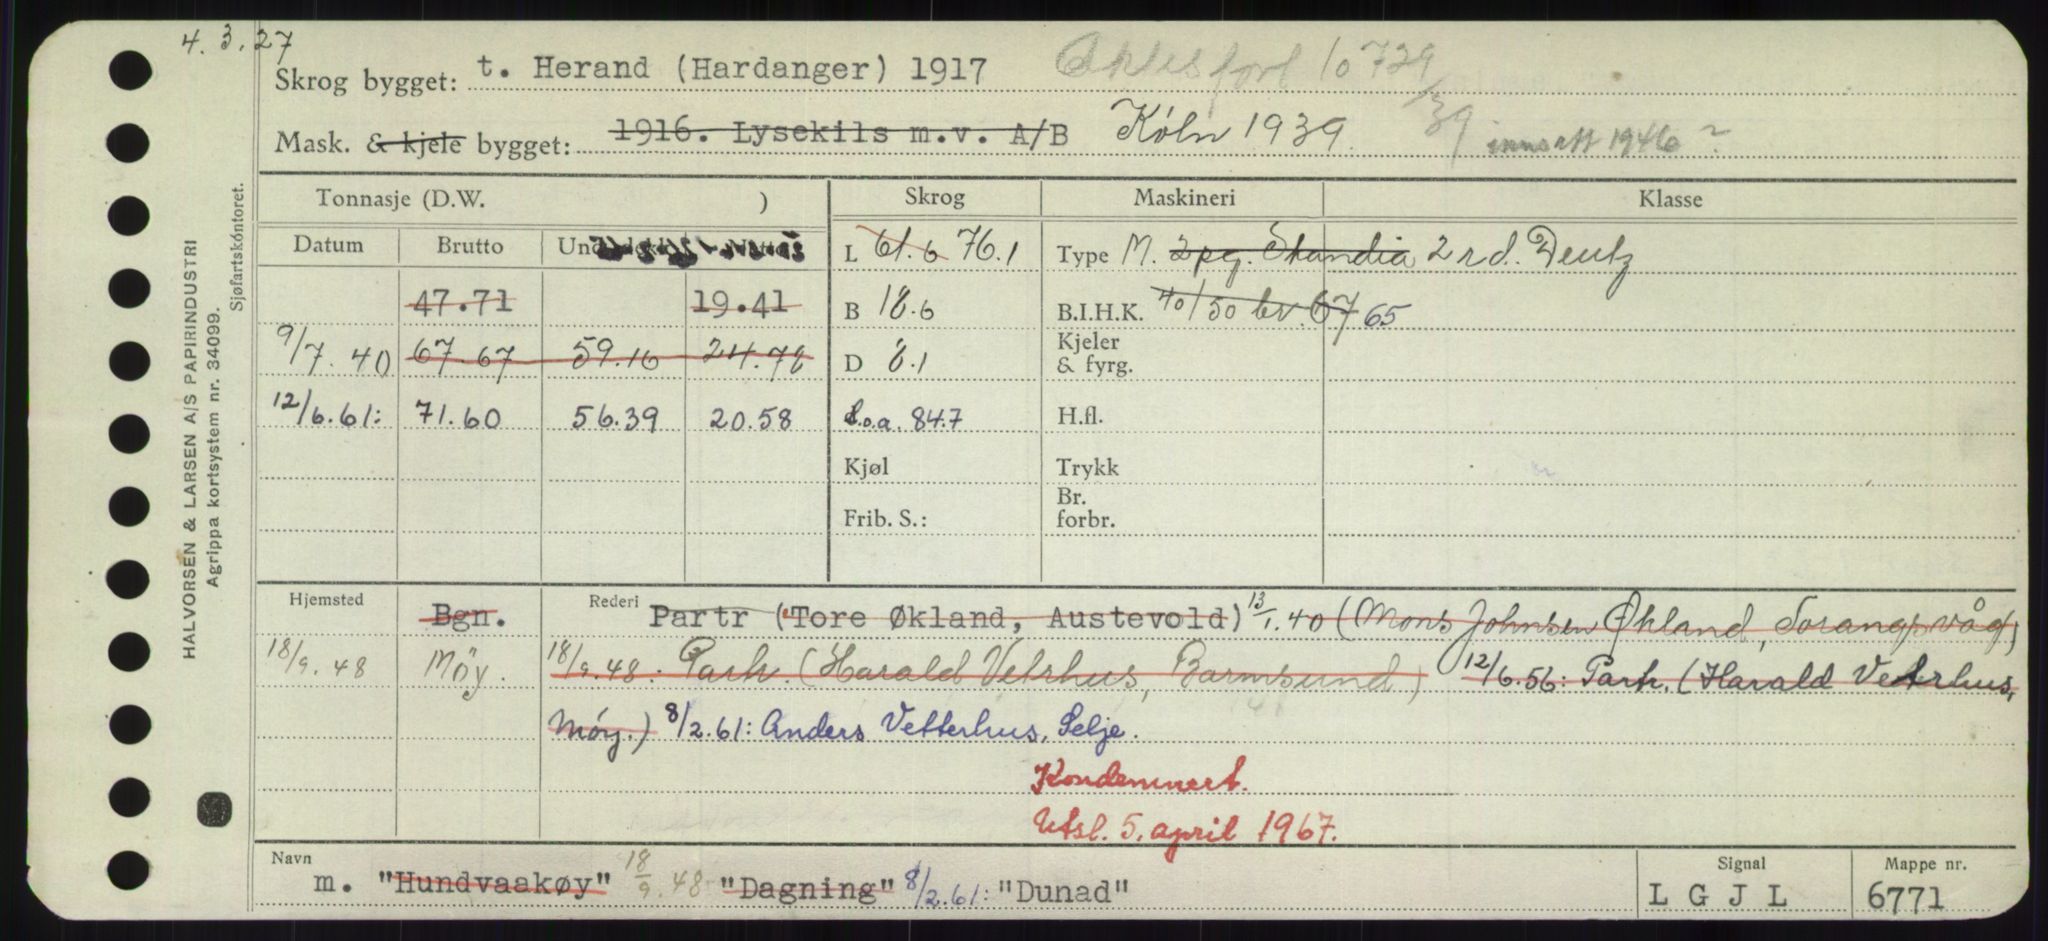 4. 3. 27
Skrog bygget: t. Herand (Hardanger) 1917 10729/39
Mask. & kjele bygget: 1916. Lysekils m.v. A/B Köln 1939. innsatt 1946 ?
Tonnasje (D.W. ) Skrog Maskineri Klasse
Datum Brutto L 61.6 76.1 Type M. 2 pg. Skandia 2 rd. Deutz
47.71 19.41 B 18.6 B.I.H.K. 40/50 bv. 67 65
9/7. 40 67.67 59.16 24.78 D 8.1 Kjeler & fyrg.
12/6.61: 71.60 56.39 20.58 L.o.a. 84.7 H.fl.
Kjøl Trykk
Frib. S.: Br. forbr.
Hjemsted Bgn. Rederi Partr (Tore Økland, Austevold) 13/1.40 (Mons Johnsen Økland,
18/9.48 Möy. 18/9.48: Partr. (Harald Vetrhus, Barmsund) 12/6.56: Partr. (Harald Vetrhus,
Möy.) 8/2.61: Anders Vetterhus, Selje.
Kondemnert.
Utsl. 5. april 1967.
Navn m. "Hundvaakøy" 18/9.48 "Dagning" 8/2.61: "Dunad" Signal L G J L Mappe nr. 6771
HALVORSEN & LARSEN A/S PAPIRINDUSTRI
Agrippa kortsystem nr. 34099.
Sjøfartskontoret.